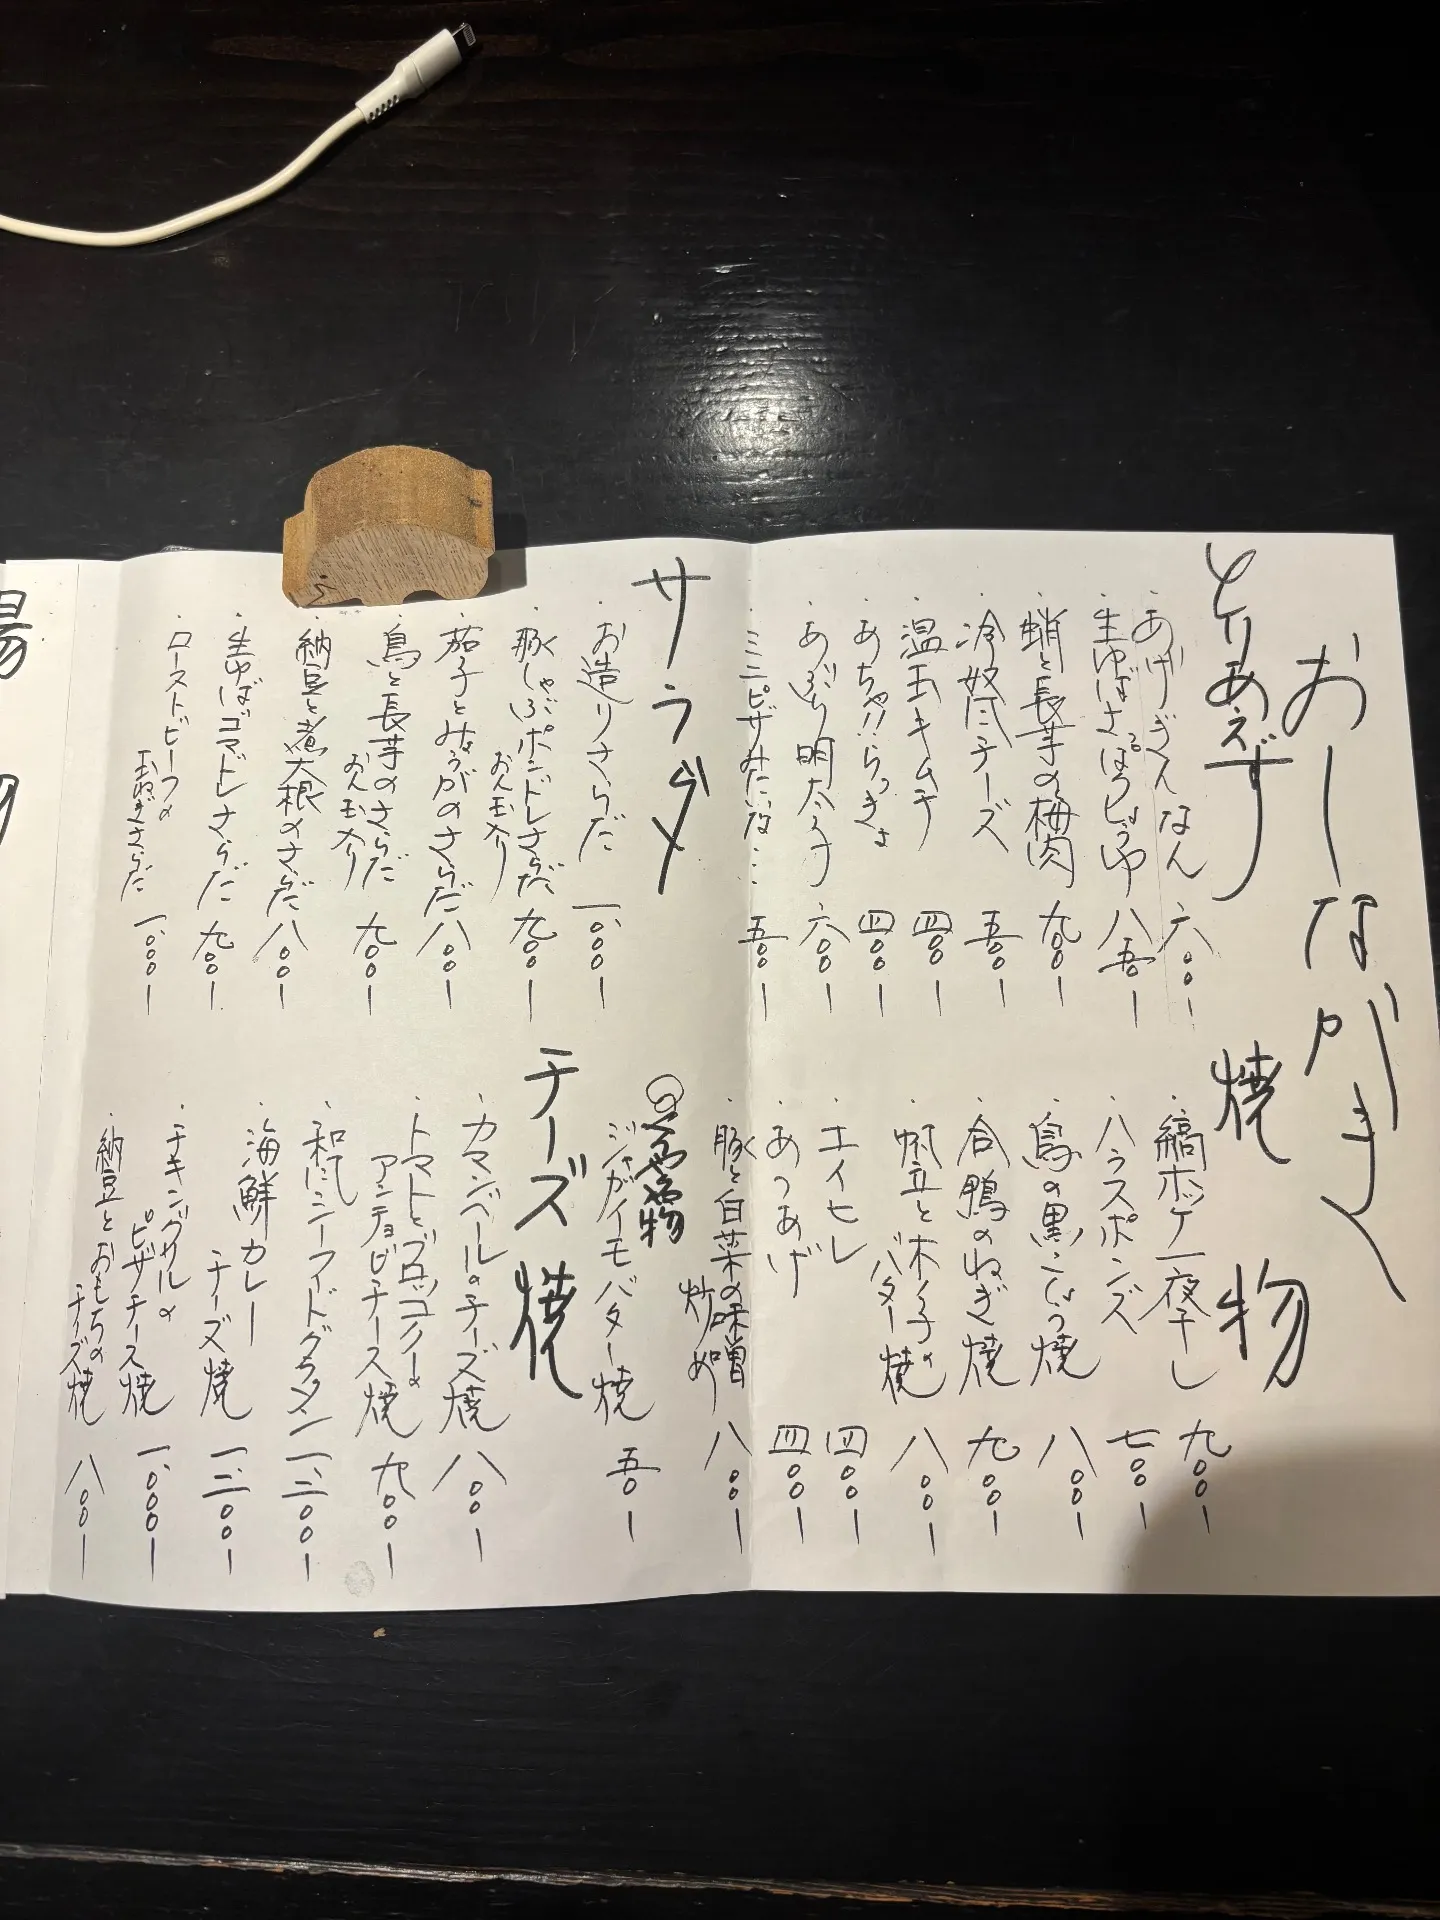 おしながき
とりあえず
・あげぎんなん 六〇〇ー
・生ゆばさっぱりしょうゆ 八五〇ー
・蛸と長芋の梅肉 九〇〇ー
・冷奴にチーズ 五〇〇ー
・温玉キムチ 四〇〇ー
・あちゃ!!らっきょ 四〇〇ー
・あぶり明太子 六〇〇ー
・ミニピザみたいな… 五〇〇ー
焼物
・縞ホッケ一夜干し 九〇〇ー
・ハラスポンズ 七〇〇ー
・鳥の黒こしょう焼 八〇〇ー
・合鴨のねぎ焼 九〇〇ー
・帆立と木ノ子の
バター焼 八〇〇ー
・エイヒレ 四〇〇ー
・あつあげ 四〇〇ー
・豚と白菜の味噌
炒め 八〇〇ー
・ジャガイモバター焼 五〇〇ー
サラダ
・お造りさらだ 一、〇〇〇ー
・豚しゃぶポンドレさらだ 九〇〇ー
おん玉入り
・茄子とみょうがのさらだ 八〇〇ー
・鳥と長芋のさらだ 九〇〇ー
おん玉入り
・納豆と煮大根のさらだ 八〇〇ー
・生ゆばゴマドレさらだ 九〇〇ー
・ローストビーフの
玉ねぎさらだ 一、〇〇〇ー
チーズ焼
・カマンベールのチーズ焼 八〇〇ー
・トマトとズッコノーの
アンチョビチーズ焼 九〇〇ー
・和風シーフードグラタン 一、二〇〇ー
・海鮮カレー
チーズ焼 一、二〇〇ー
・チキングリルの
ピザチーズ焼 一、〇〇〇ー
・納豆とおもちの
チーズ焼 八〇〇ー